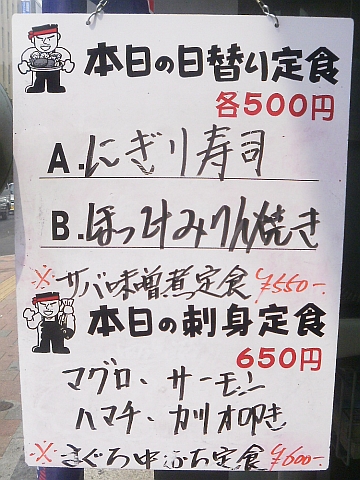 本日の日替り定食
各500円
A.にぎり寿司
B.ほっけみりん焼き
※サバ味噌煮定食 ¥550-
本日の刺身定食
650円
マグロ、サーモン
ハマチ、カツオ叩き
※まぐろ中おち定食 ¥600-